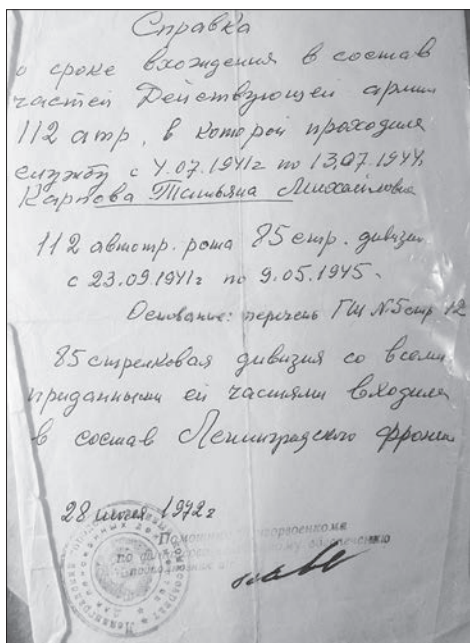 Справка
о сроке вхождения в состав
частей Действующей армии
112 атр, в которой проходила
службу с 4.07.1941г по 13.07.1944,
Карпова Татьяна Михайловна
112 автотр. рота 85 стр. дивизии
с 23.09.1941г по 9.05.1945.
Основание: перечень ГШ №5 стр 12
85 стрелковая дивизия со всеми
приданными ей частями входила
в состав Ленинградского фронта
28 июня 1972г
райвоенкома
обеспечению